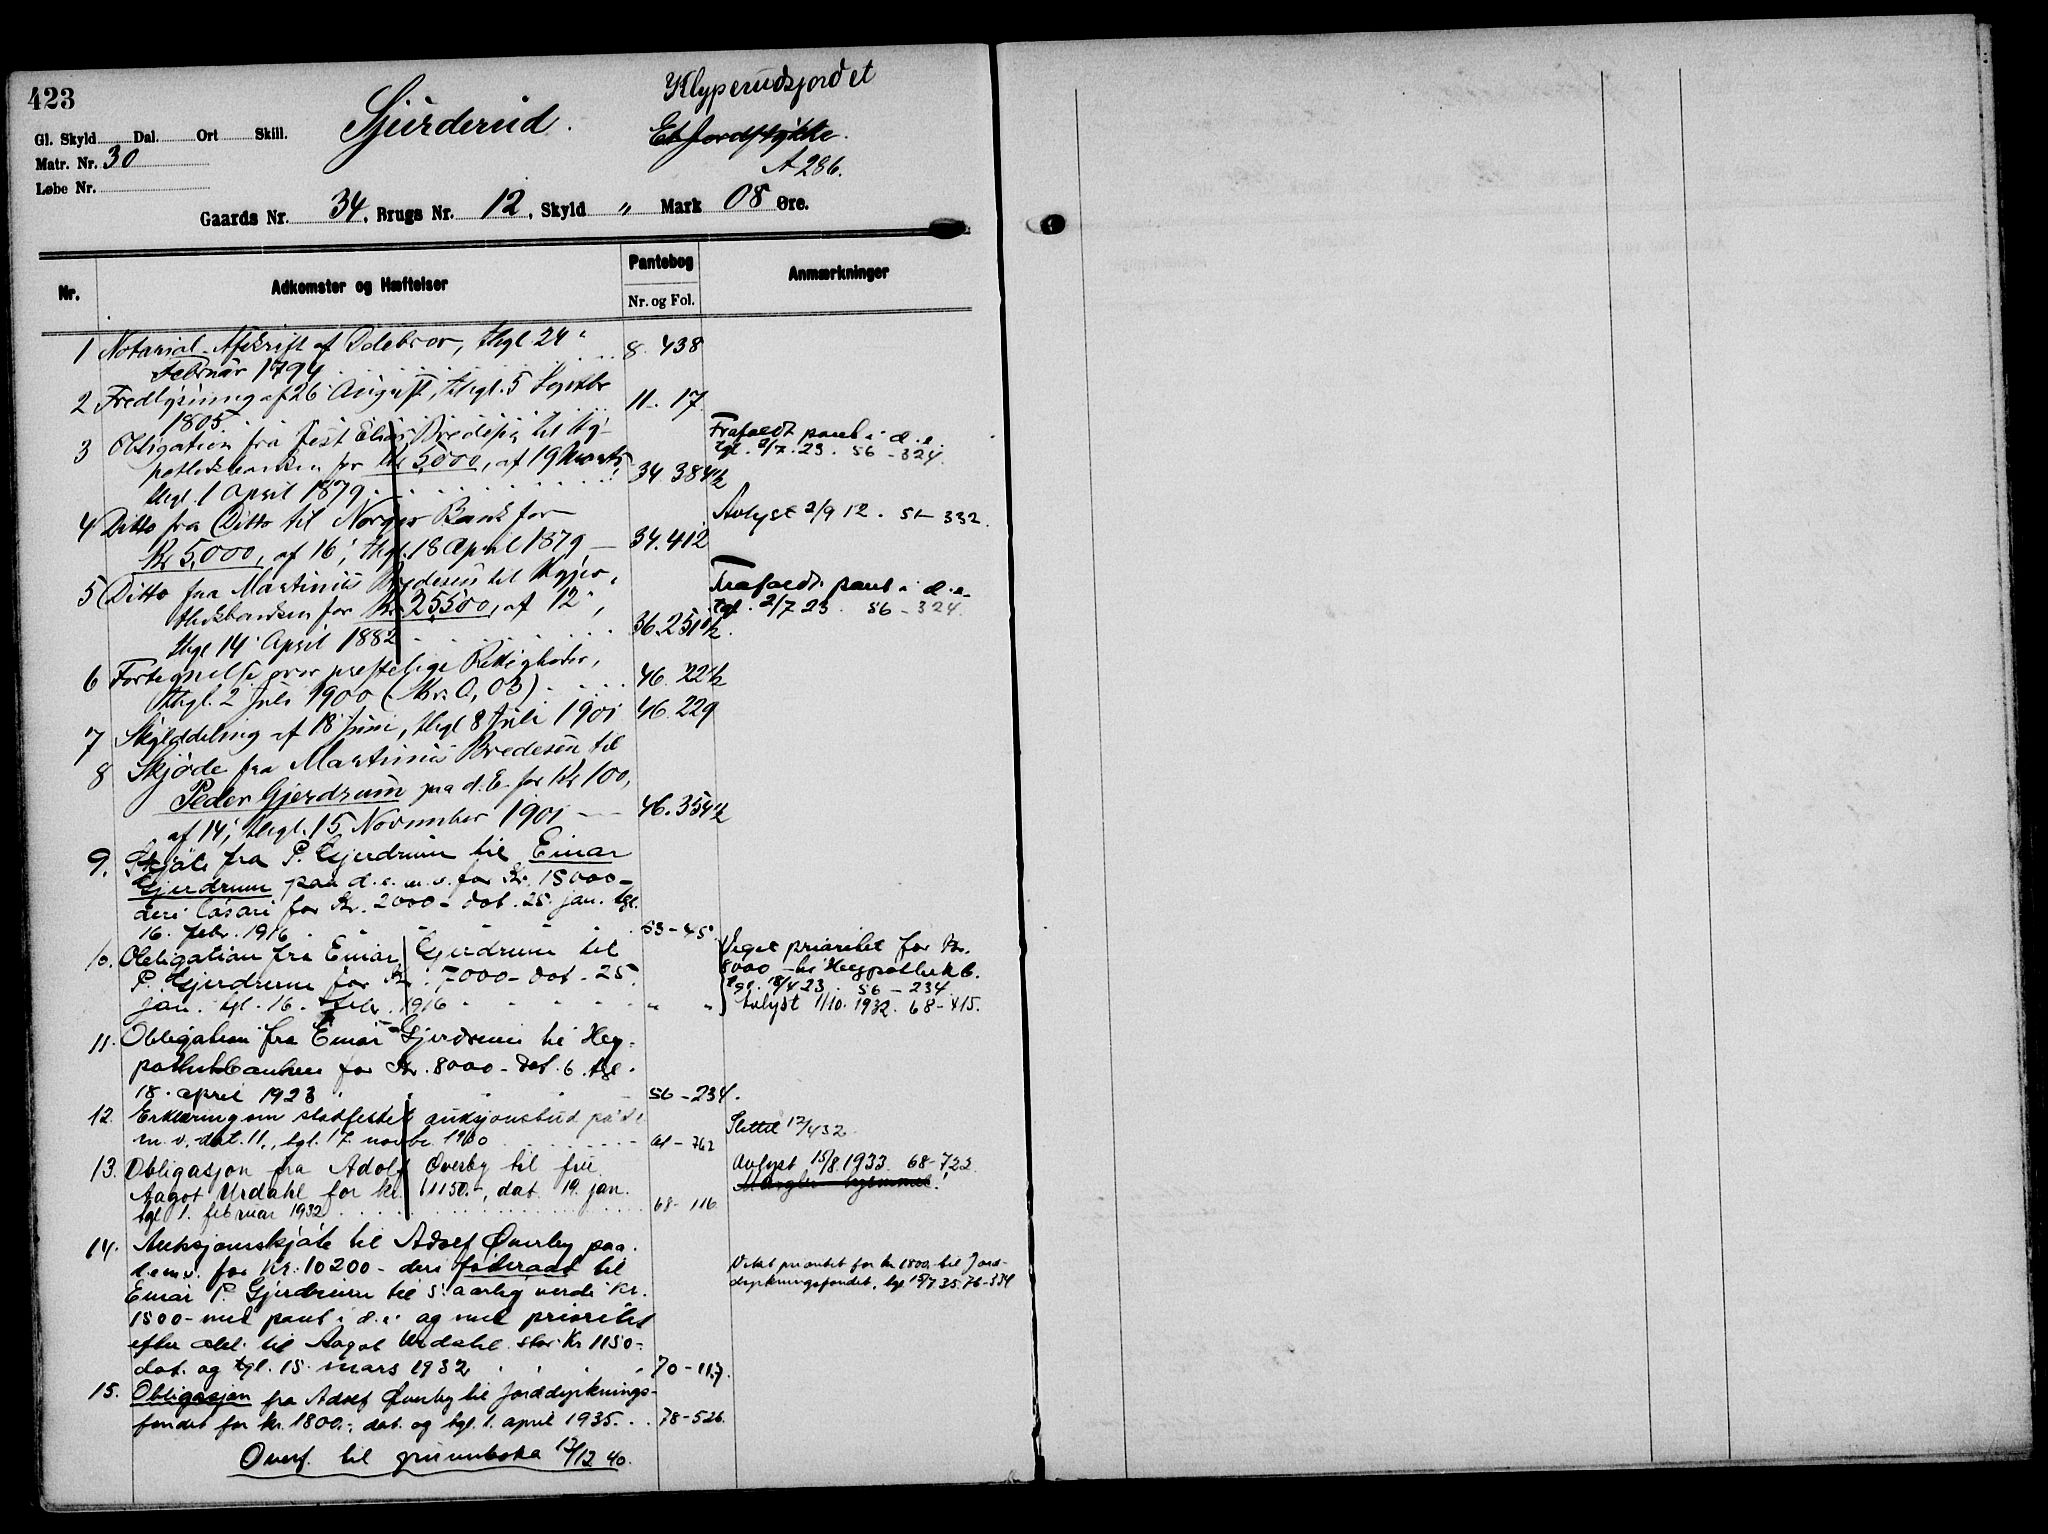 423
Sjurderud.
Klyperudsjordet
Et Jordstykke.
A 286.
Gl. Skyld Dal. Ort Skill.
Matr. Nr. 30
Løbe Nr.
Gaards Nr. 34, Brugs Nr. 12, Skyld " Mark 08 Øre.
Nr. Adkomster og Hæftelser Pantebog Nr. og Fol. Anmærkninger
1 Notarial-Afskrift af thgl. 24
Februar 1794 8. 438
2 Fredlysning af 26 August, thgl. 5 Septbr
1805 11. 17
3 Obligation fra Jest Elias Bredesen til Hy-
pothekbanken for Kr 5000, af 19 Marts,
thgl. 1 April 1879 34. 384 1/2
Frafaldt pant i d.e.
tgl. 2/7.23. 56-324.
4 Ditto fra Ditto til Norges Bank for
Kr 5,000, af 16, thgl. 18 April 1879 34.412
Avlyst 2/9 12. 51-332.
5 Ditto fra Martinus Bredesen til Hypo-
thekbanken for Kr. 25500, af 12,
thgl 14 April 1882 36.251 1/2.
Frafaldt pant i d.e.
tgl. 2/7 23. 56-324.
6 Fortegnelse over præstelige Rettigheder,
thgl. 2 Juli 1900 (Kr. 0,03) 46. 22 1/2
7 Skylddeling af 18 Juni, thgl 8 Juli 1901 46.229
8 Skjøde fra Martinus Bredesen til
Peder Gjerdrum paa d. E. for Kr 100,
af 14, thgl. 15 November 1901 46.354 1/2
9. Skjøte fra P. Gjerdrum til Einar
Gjerdrum paa d.e.m.v. for Kr. 15000-
deri løsøre for Kr. 2000- dat. 25 jan. tgl.
16. febr. 1916 53-45.
10. Obligation fra Einar Gjerdrum til
P. Gjerdrum for Kr. 7000- dat. 25.
jan. tgl. 16. febr. 1916 " "
Veget prioritet for Kr.
8000 - til Hypothekb.
tgl. 18/4 23. 56-234
Avlyst 1/10. 1932. 68-415.
11. Obligation fra Einar Gjerdrum til Hy-
pothekbanken for Kr. 8000- dat. 6. tgl.
18. april 1923 56-234.
12. Erklæring om stadfestet auksjonsbud på d e
m.v. dat. 11., tgl. 17 novbr. 1930 61-762
Slettet 12/4 32
13. Obligasjon fra Adolf Øverby til fru
Aagot Urdahl for kr. 1150.-, dat. 19. jan.
tgl 1. februar 1932 68-116
Avlyst 15/8.1933. 68-722
14. Auksjonsskjøte til Adolf Øverby paa
d.e.m.v. for Kr: 10200- deri føderaad til
Einar P. Gjerdrum til 5 aarlig verdi Kr.
1500- med pant i d.e. og med prioritet
efter obl. til Aagot Urdahl stor Kr 1150-
dat. og tgl. 15. mars 1932 70-117.
Veket prioritet for kr 1800,- til Jord-
dyrkningsfondet, tgl 35.76-334
15. Obligasjon fra Adolf Øverby til Jorddyrknings-
fondet for kr. 1800.-, dat. og tgl. 1. april 1935. 78-526.
Overf. til grunnboka 12/12 40.